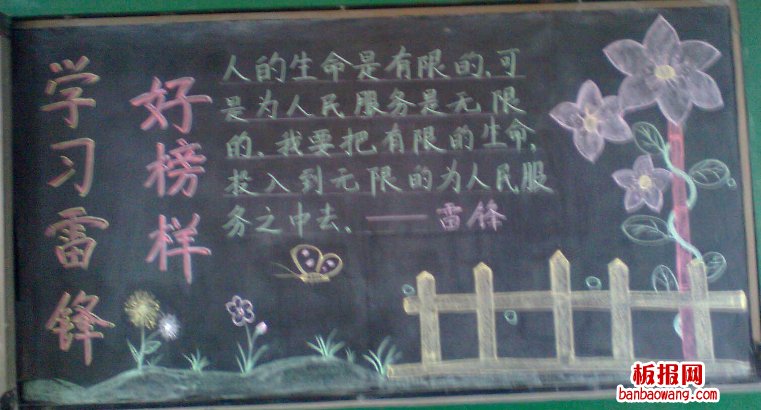 学习雷锋
好榜样
人的生命是有限的、可
是为人民服务是无限
的、我要把有限的生命,
投入到无限的为人民服
务之中去、——雷锋
板报网
banbaowang.com